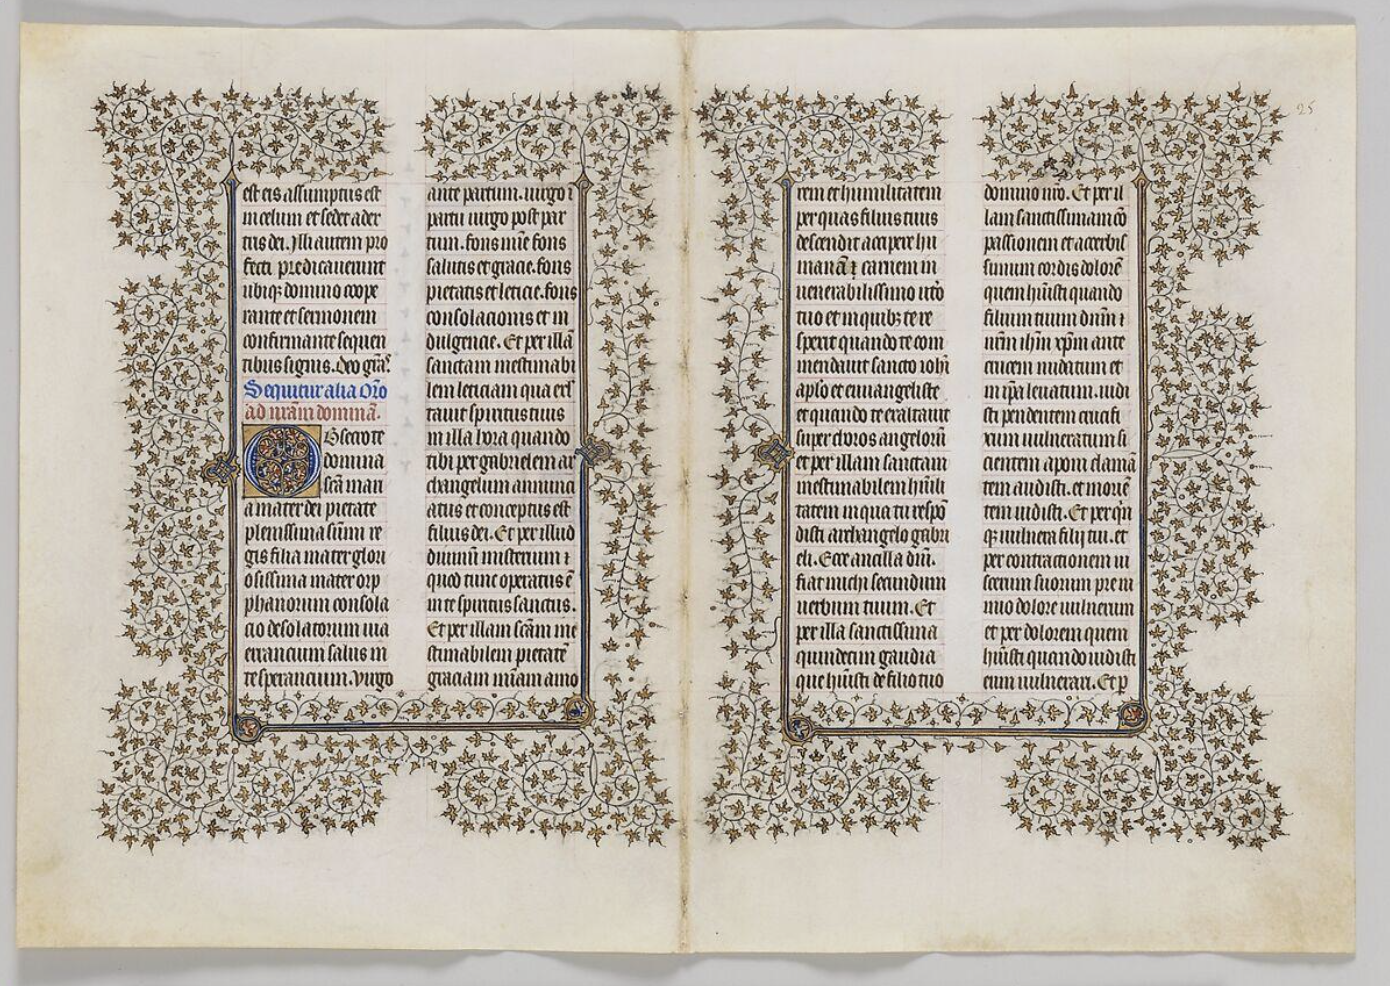 est eis assumptus est
in celum et sedet a der
tris dei. Illi autem pro
fecti predicauerunt
ubiq; domino coope
rante et sermonem
confirmante sequen
tibus signis. Deo grãs
Sequitur alia Oro
ad nr̃am dominã.
Obsecro te
domina
scã mari
a mater dei pietate
plenissima sũmi re
gis filia mater glori
osissima mater orp
phanorum consola
cio desolatorum uia
errancium salus in
te sperancium. Virgo
ante partum. uirgo ĩ
partu uirgo post par
tum. fons mĩe fons
salutis et gracie. fons
pietatis et leticie. fons
consolacionis et in
dulgencie. Et per illã
sanctam inestimabi
lem leticiam qua exl
tauit spiritus tuus
in illa hora quando
tibi per gabrielem ar
changelum annunci
atus et conceptus est
filius dei. Et per illud
diuinũ misterium ⁊
quod tunc operatus ẽ
in te spiritus sanctus.
Et per illam scãm ine
stimabilem pietatẽ
graciam mĩam amo
rem et humilitatem
per quas filius tuus
descendit accipere hu
manã ⁊ carnem in
uenerabilissimo utõ
tuo et in quibz te re
spexit quando te com
mendauit sancto iohi
aplo et euuangeliste
et quando te exaltauit
super choros angelorũ
et per illam sanctam
inestimabilem hũili
tatem in qua tu respõ
disti archangelo gabri
eli. Ecce ancilla dñi.
fiat michi secundum
uerbum tuum. Et
per illa sanctissima
quindecim gaudia
que hũisti de filio tuo
domino nr̃o. Et per il
lam sanctissimam cõ
passionem et acerbis
simum cordis dolorẽ
quem hũisti quando
filium tuum dñm ⁊
nr̃m ihm xp̃m ante
crucem nudatum et
in ip̃a leuatum. uidi
sti pendentem crucifi
xum uulneratum si
cientem aponi clamã
tem audisti. et moriẽ
tem uidisti. Et per qñ
q; uulnera filij tui. et
per contractionem ui
scerum suorum pre ni
mio dolore uulnerum
et per dolorem quem
hũisti quando uidisti
eum uulnerari. Et p
25